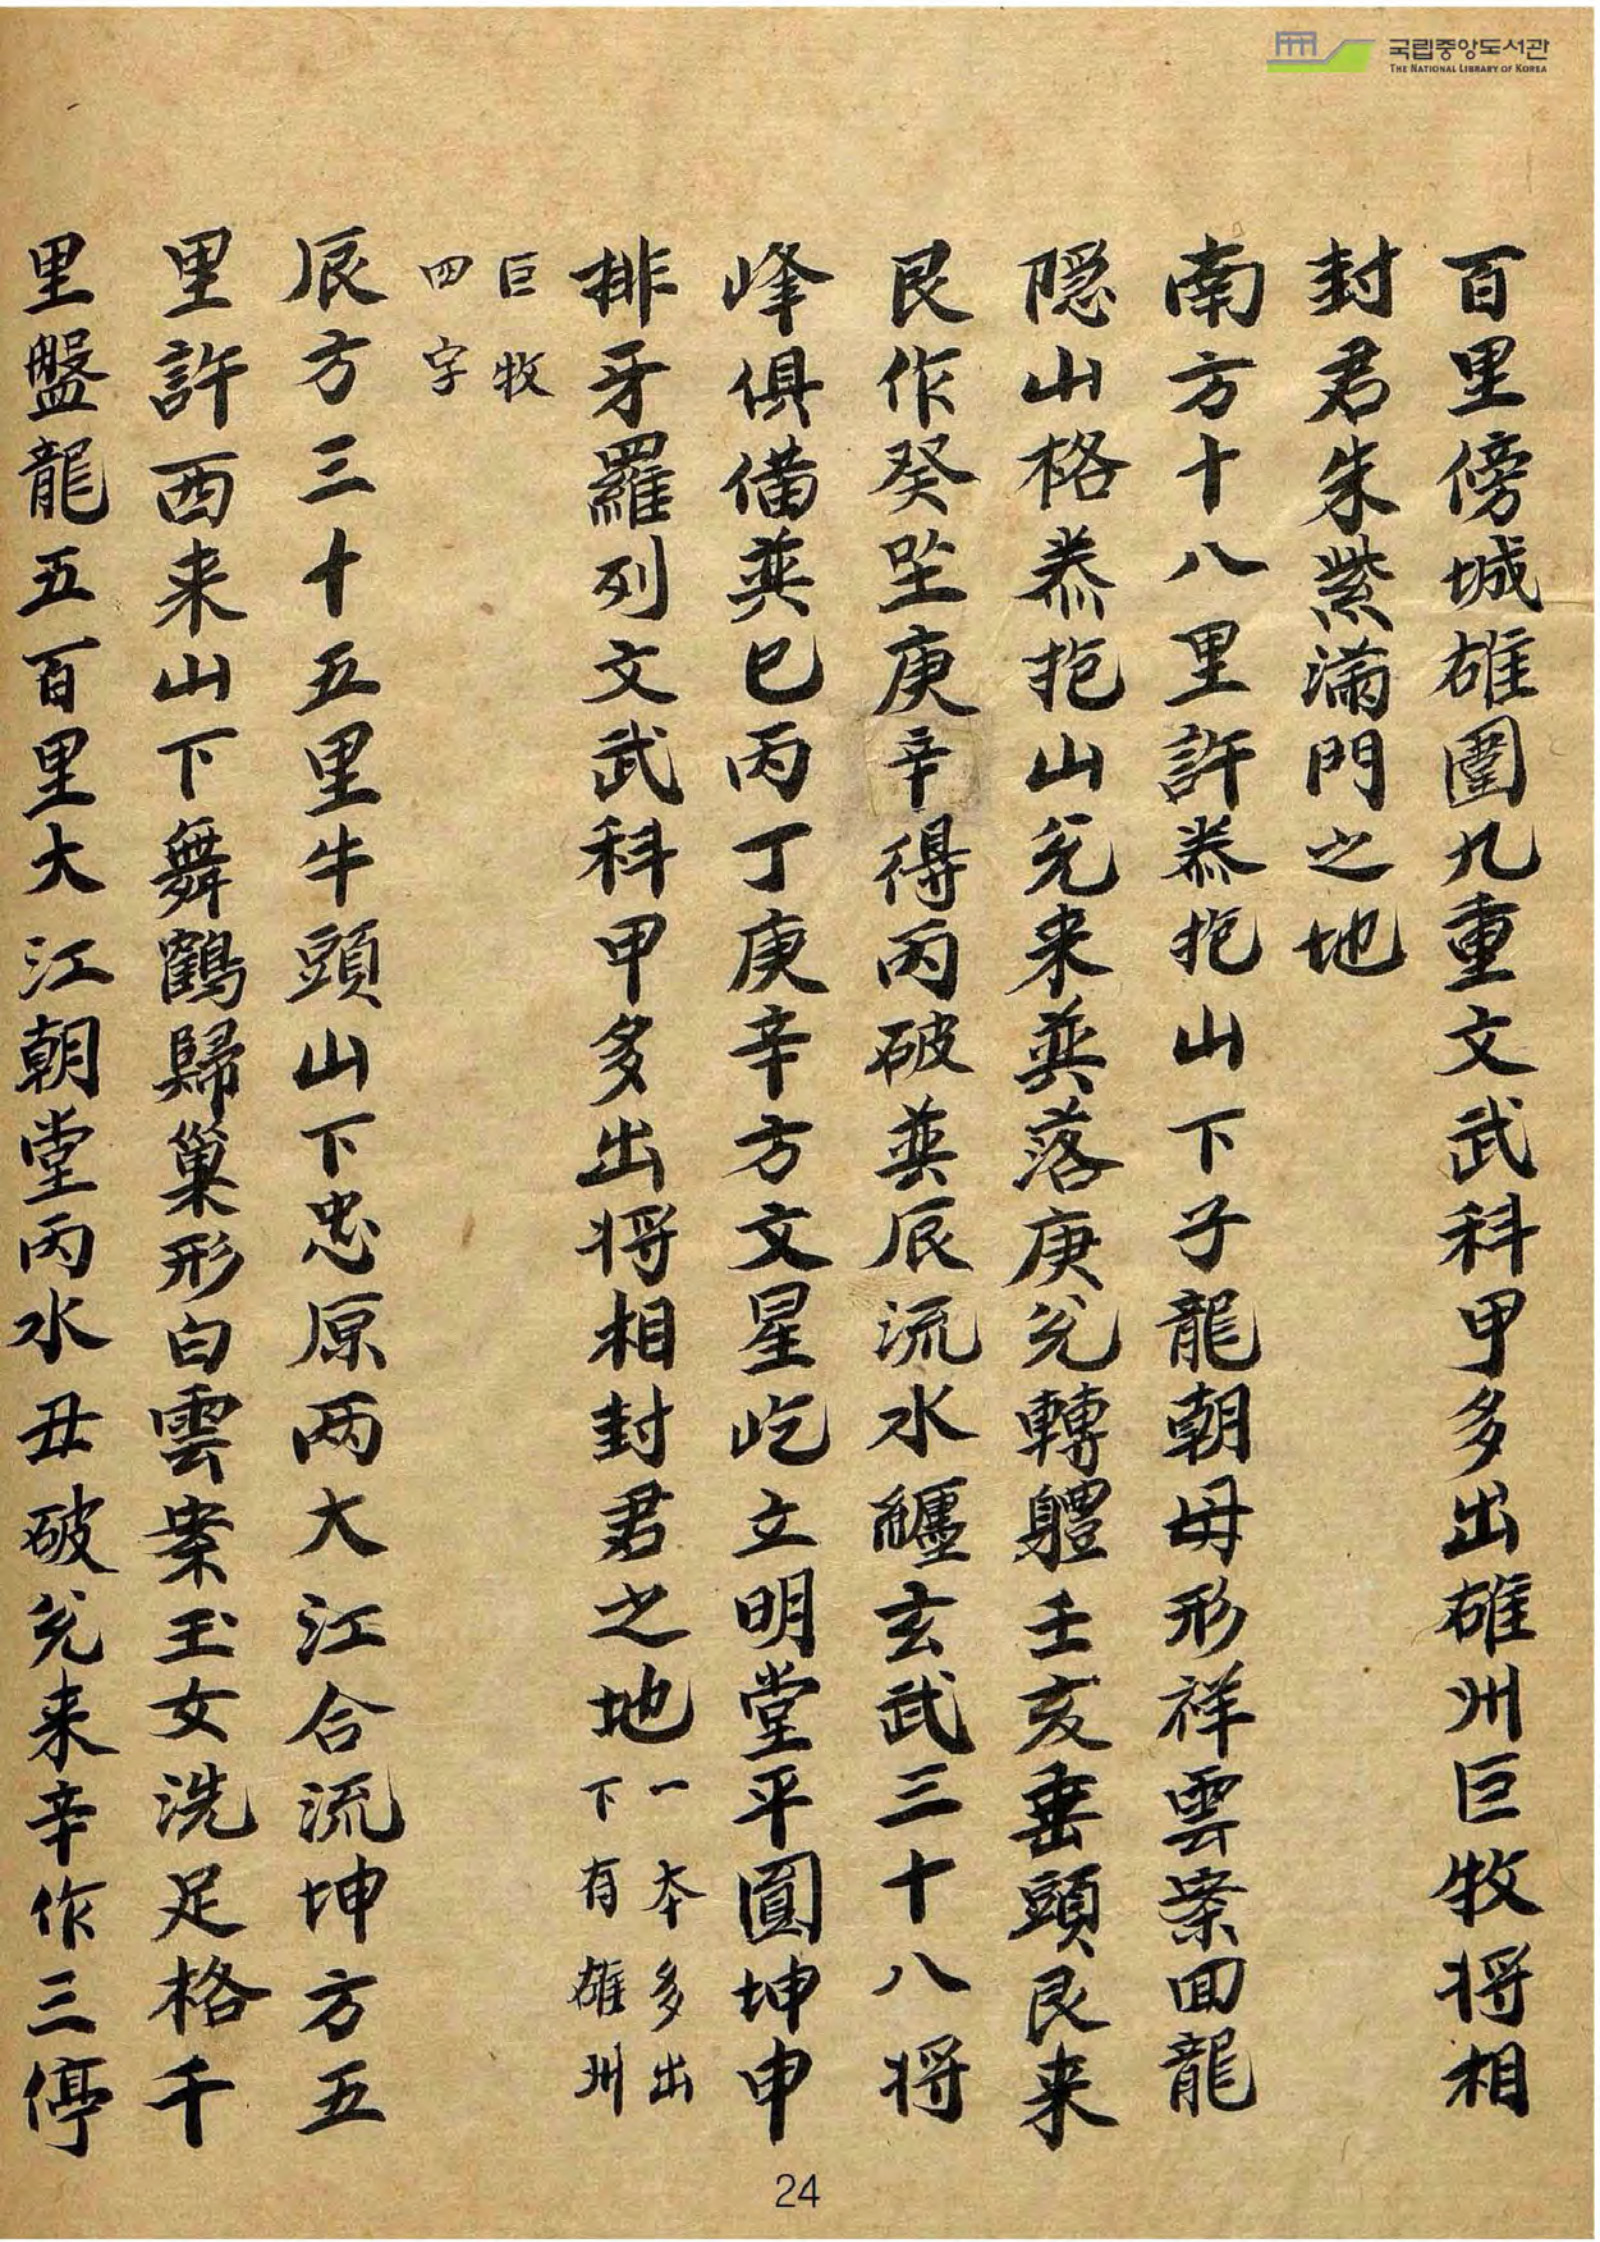 국립중앙도서관
THE NATIONAL LIBRARY OF KOREA
百里傍城雄圍九重文武科甲多出雄州巨牧将相
封君朱紫滿門之地
南方十八里許恭抱山下子龍朝母形祥雲案回龍
隠山格恭抱山兊来巽落庚兊轉軆壬亥垂頭艮来
艮作癸坐庚辛得丙破巽辰流水纏玄武三十八将
峰俱俻巽巳丙丁庚辛方文星屹立明堂平圓坤申
排牙羅列文武科甲多出将相封君之地
一本多出
下有雄州
巨牧
四字
辰方三十五里牛頭山下忠原两大江合流坤方五
里許西来山下舞鶴歸巢形白雲案玉女洗足格千
里盤龍五百里大江朝堂丙水丑破兊来辛作三停
24